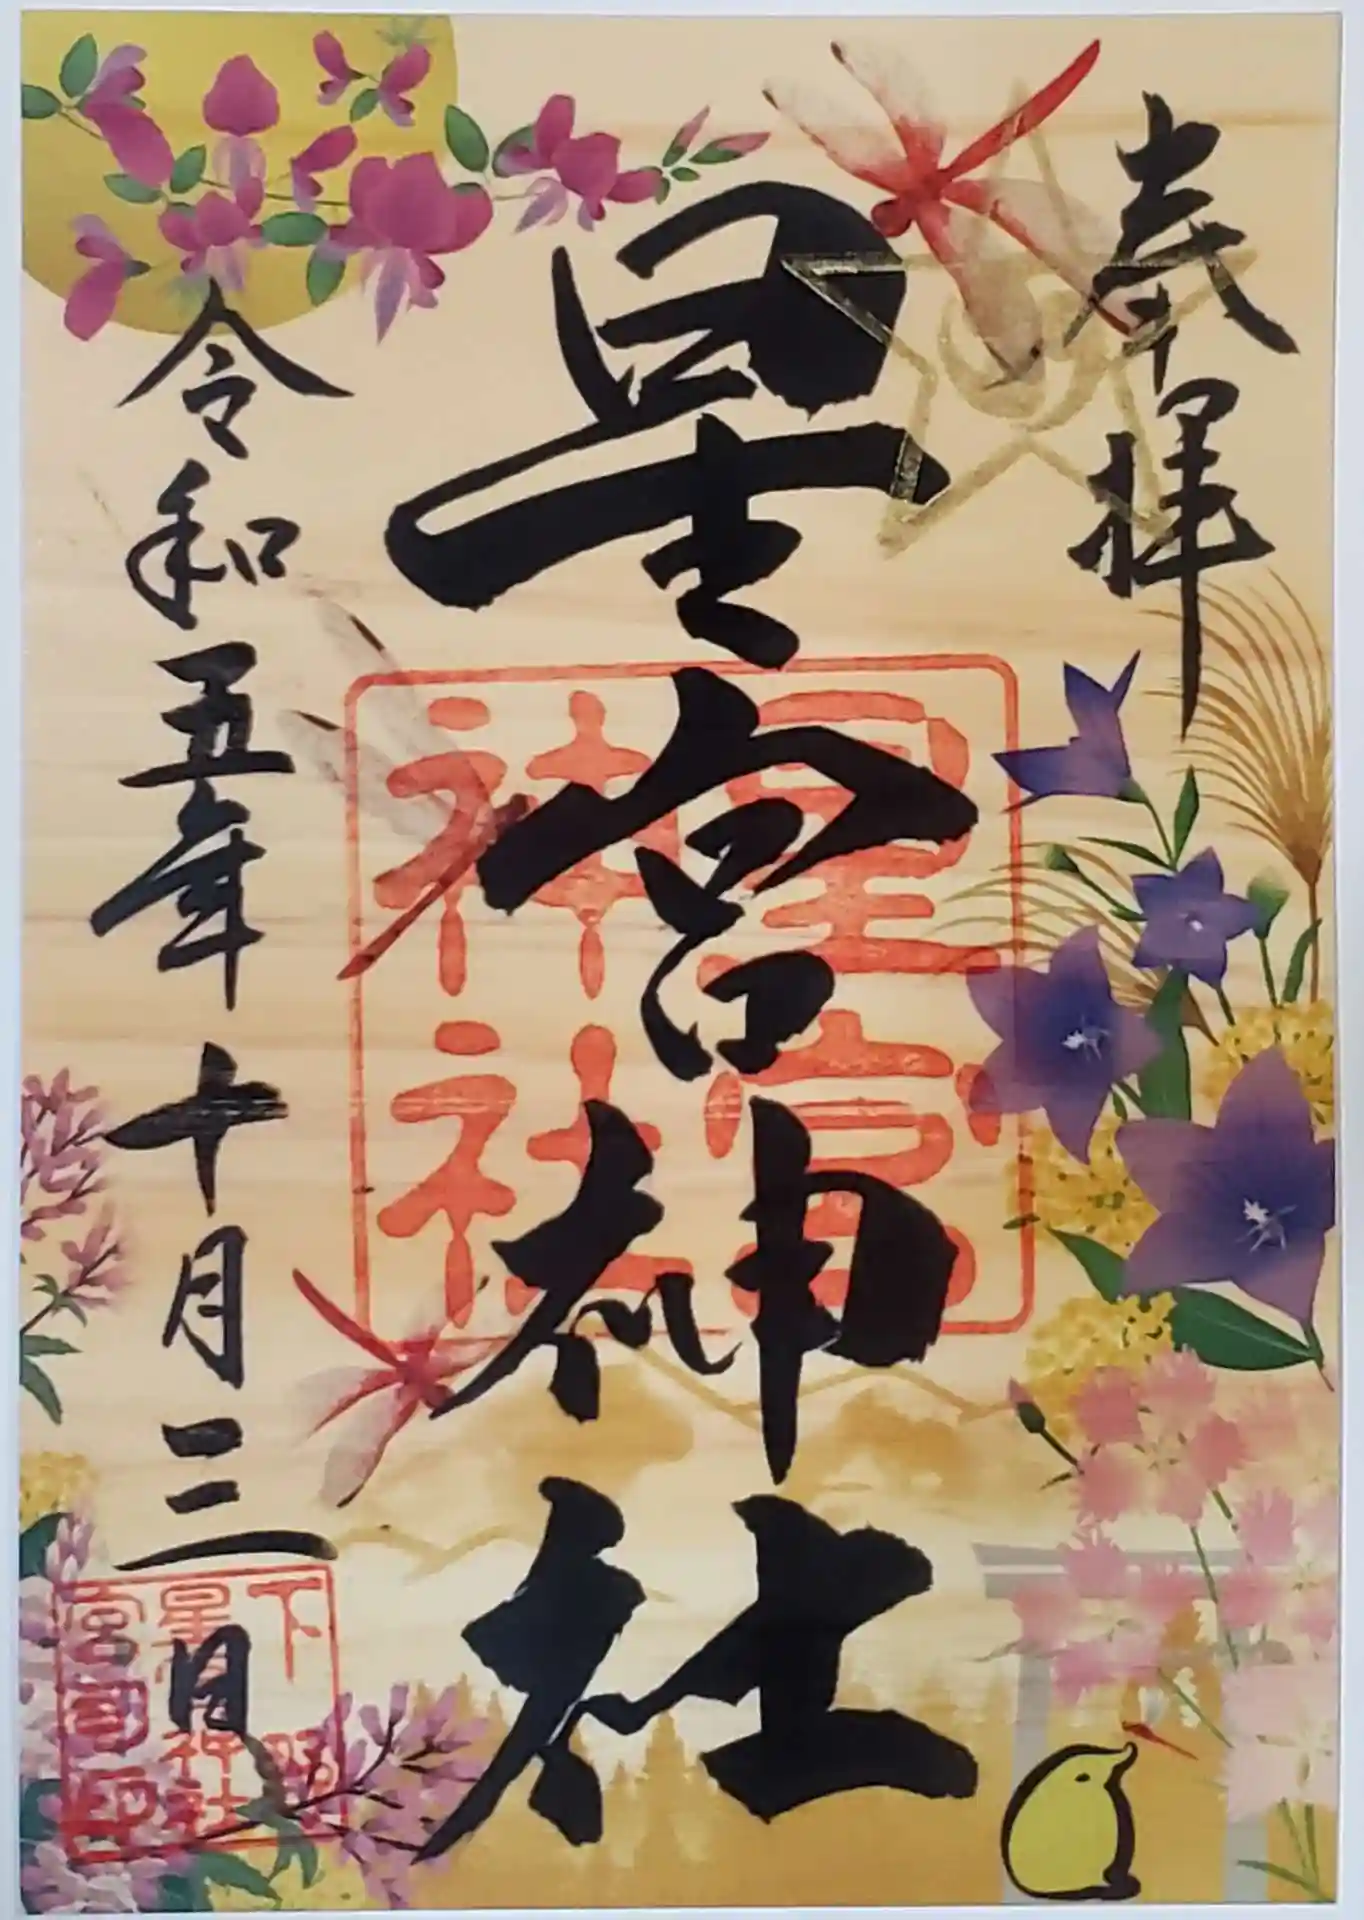 奉拝
星宮神社
星宮
神社
令和五年十月三日
下野
星宮神社
宮司印